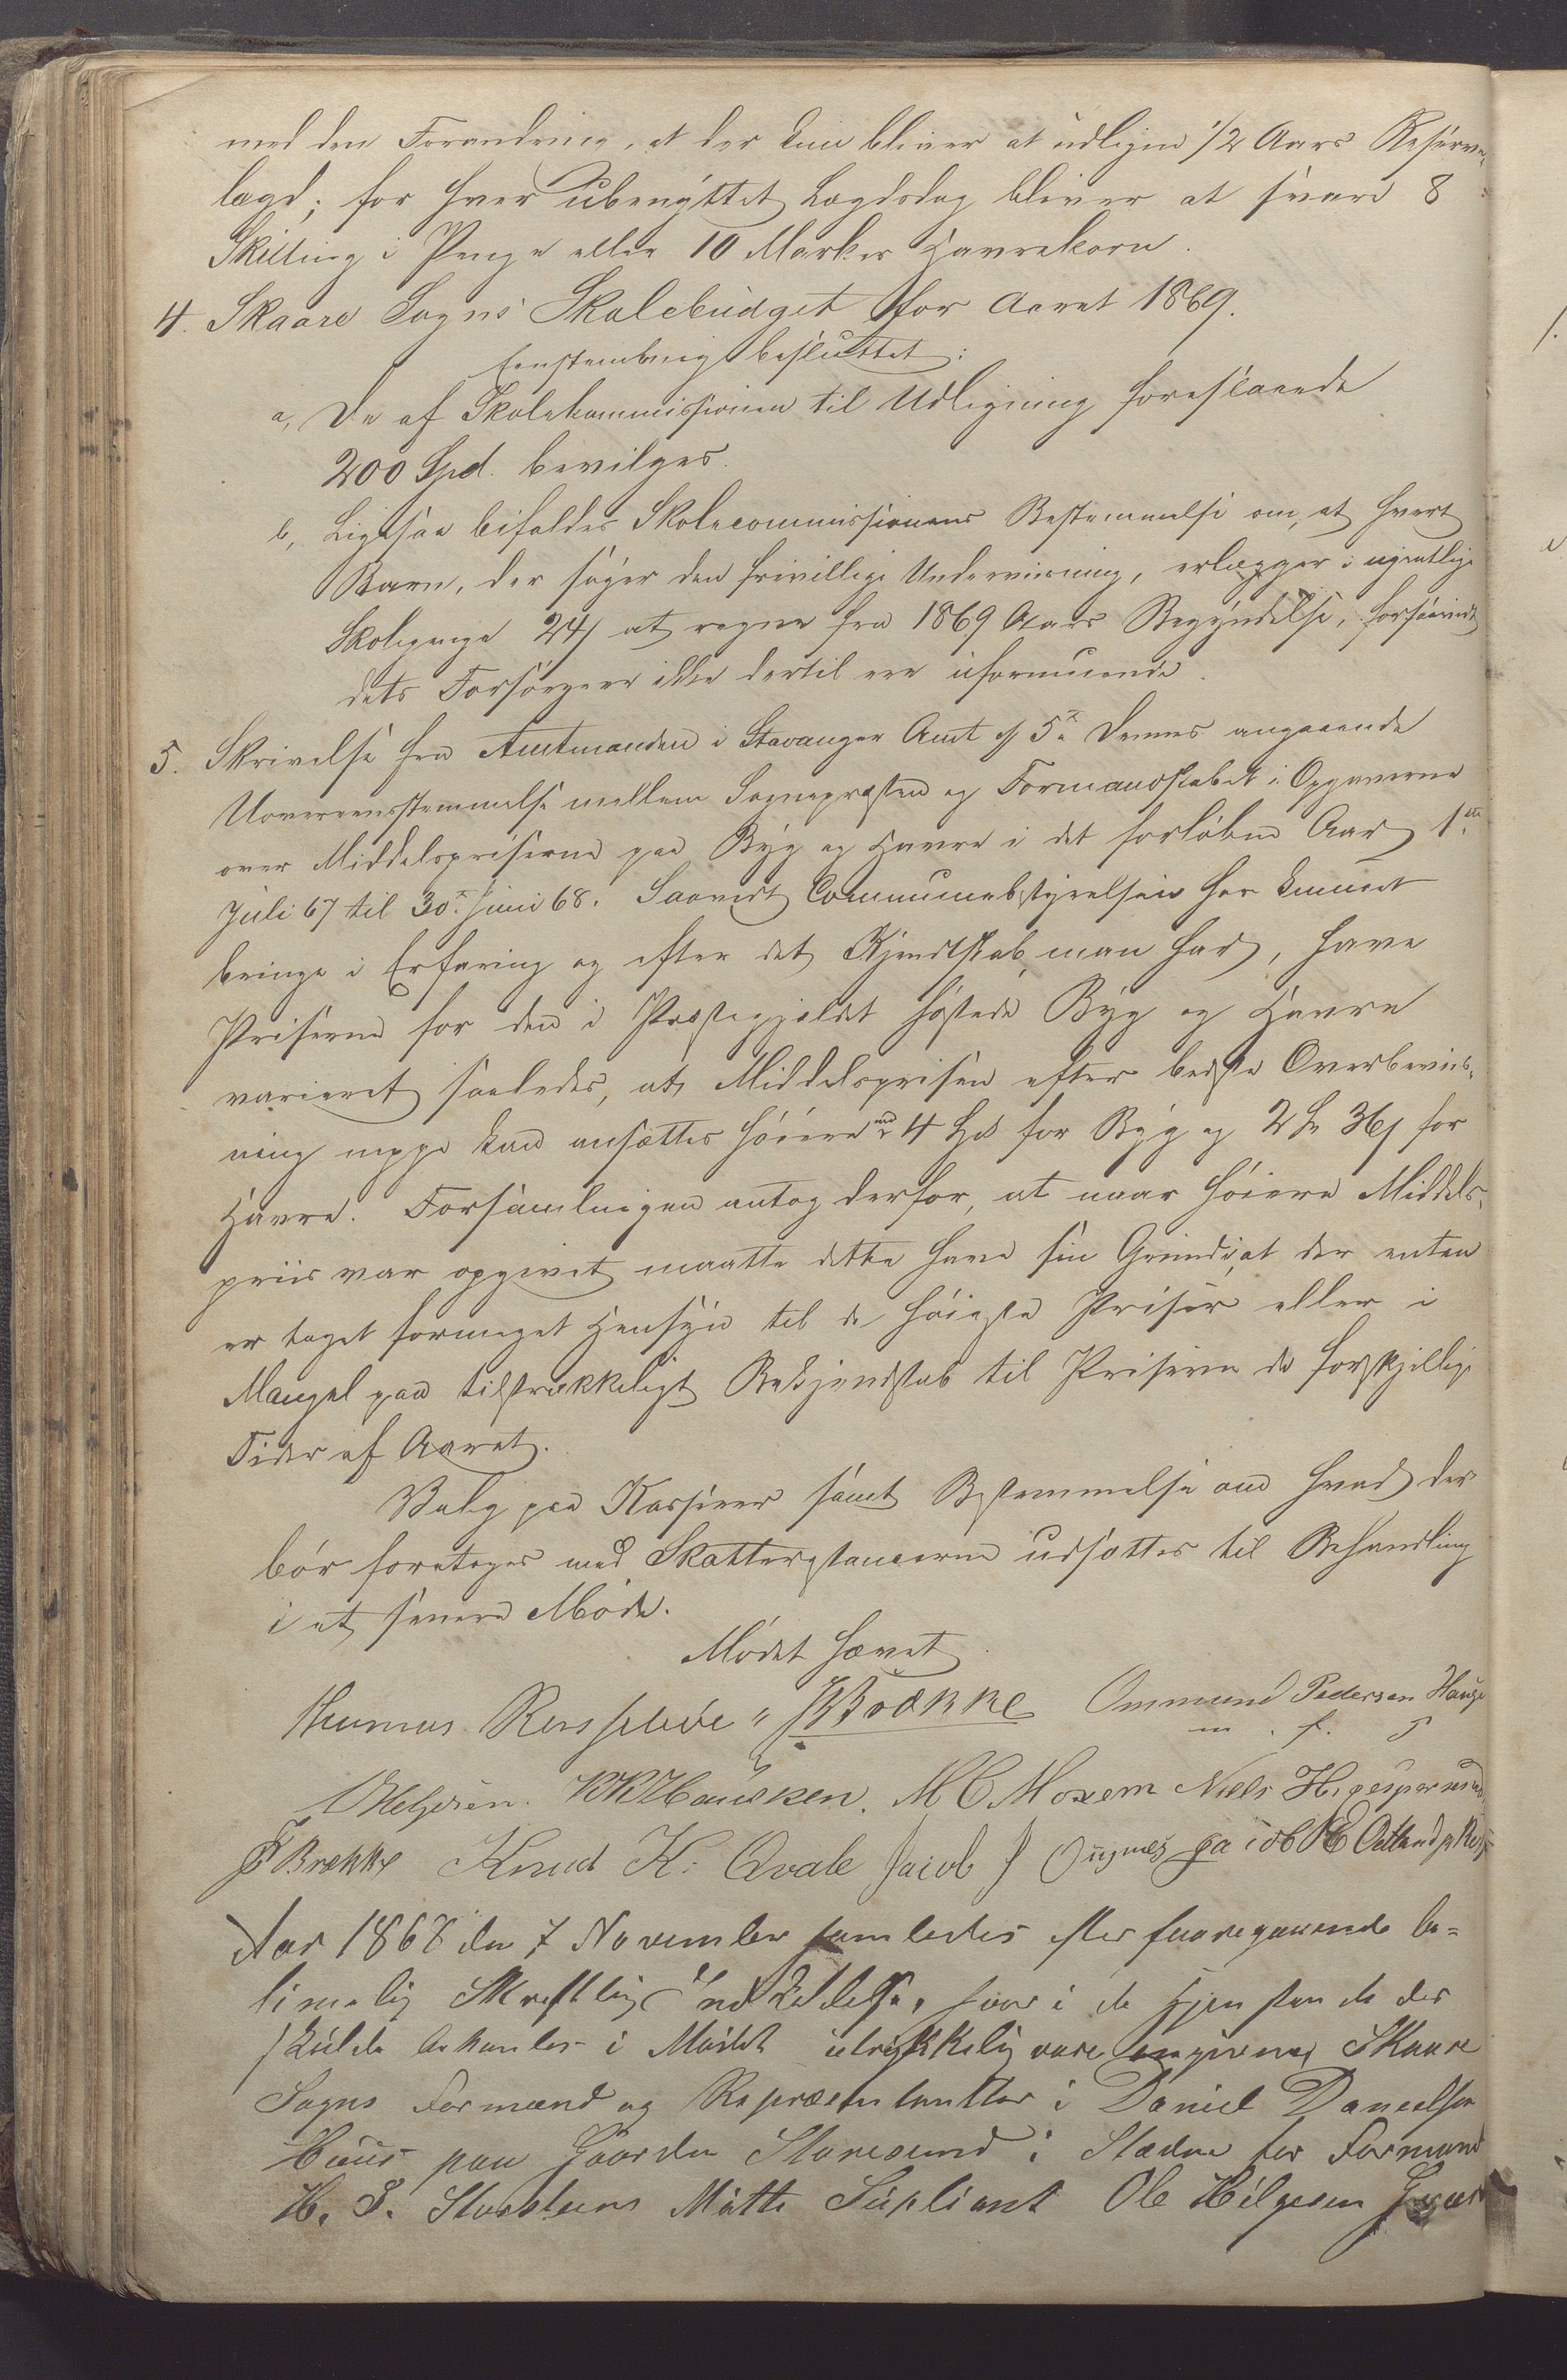 med den Forandring, at der kun bliver at udligne 1/2 Aars Reserve-
lægd; for hver ubenyttet Lægdsdag bliver at svare 8
Skilling i Penge eller 10 Marker Havrekorn.
4. Skaare Sogns Skolebudget for Aaret 1869.
Eenstemmig besluttet:
a, De af Skolekommissionen til Udligning foreslaaede
200 Spd. bevilges.
b, Ligesaa bifaldes Skolecommissionens Bestemmelse om, at hvert
Barn, der søger den frivillige Undervisning, erlægger i ugentlige
Skolepenge 24 s at regne fra 1869 Aars Begyndelse, forsaavidt
dets Forsørgere ikke dertil ere uformuende.
5. Skrivelse fra Amtmanden i Stavanger Amt af 5te Dennes angaaende
Uoverensstemmelse mellem Sognepræsten og Formandskabet i Opgaverne
over Middelspriserne paa Byg og Havre i det forløbne Aar 1ste
Juli 67 til 30te Juni 68. Saavidt Communebestyrelsen har kunnet
bringe i Erfaring og efter det Kjendskab man har, have
Priserne for den i Præstegjeldet høstede Byg og Havre
varieret saaledes, at Middelsprisen efter bedste Overbeviis-
ning neppe kan ansættes høiere end 4 for Byg og 2 36 s for
Havre. Forsamlingen antog derfor, at naar høiere Middels-
priis var opgivet maatte dette have sin Grund i, at der enten
er taget formeget Hensyn til de høieste Priser eller i
Mangel paa tilstrækkeligt Bekjendtskab til Priserne de forskjellige
Tider af Aaret.
Valg paa Kasserer samt Bestemmelse om hvad der
bør foretages med Skatterestancerne udsættes til Behandling
i et senere Møde.
Mødet hævet
Brække Ommund Pedersen Hauge
m. f. P
Helgesen. KK Hausken. M C Moxem Niels H.
Brække Knud K. Qvale Jacob J Jacob
Aar 1868 den 7 November samledes efter foregaaende be-
timelig Skreftlig Indkaldelse, hvor i de Gjenstande der
skulde behanles i Mødet udtrykkelig vare angivene, Skaare
Sogns Formænd og Repræsentantter i Daniel Danielsen
Huus paa Gaarden Storesund i Stædne for Formand
H. S. Storsteens Møtte Supliant Ole Helgesen